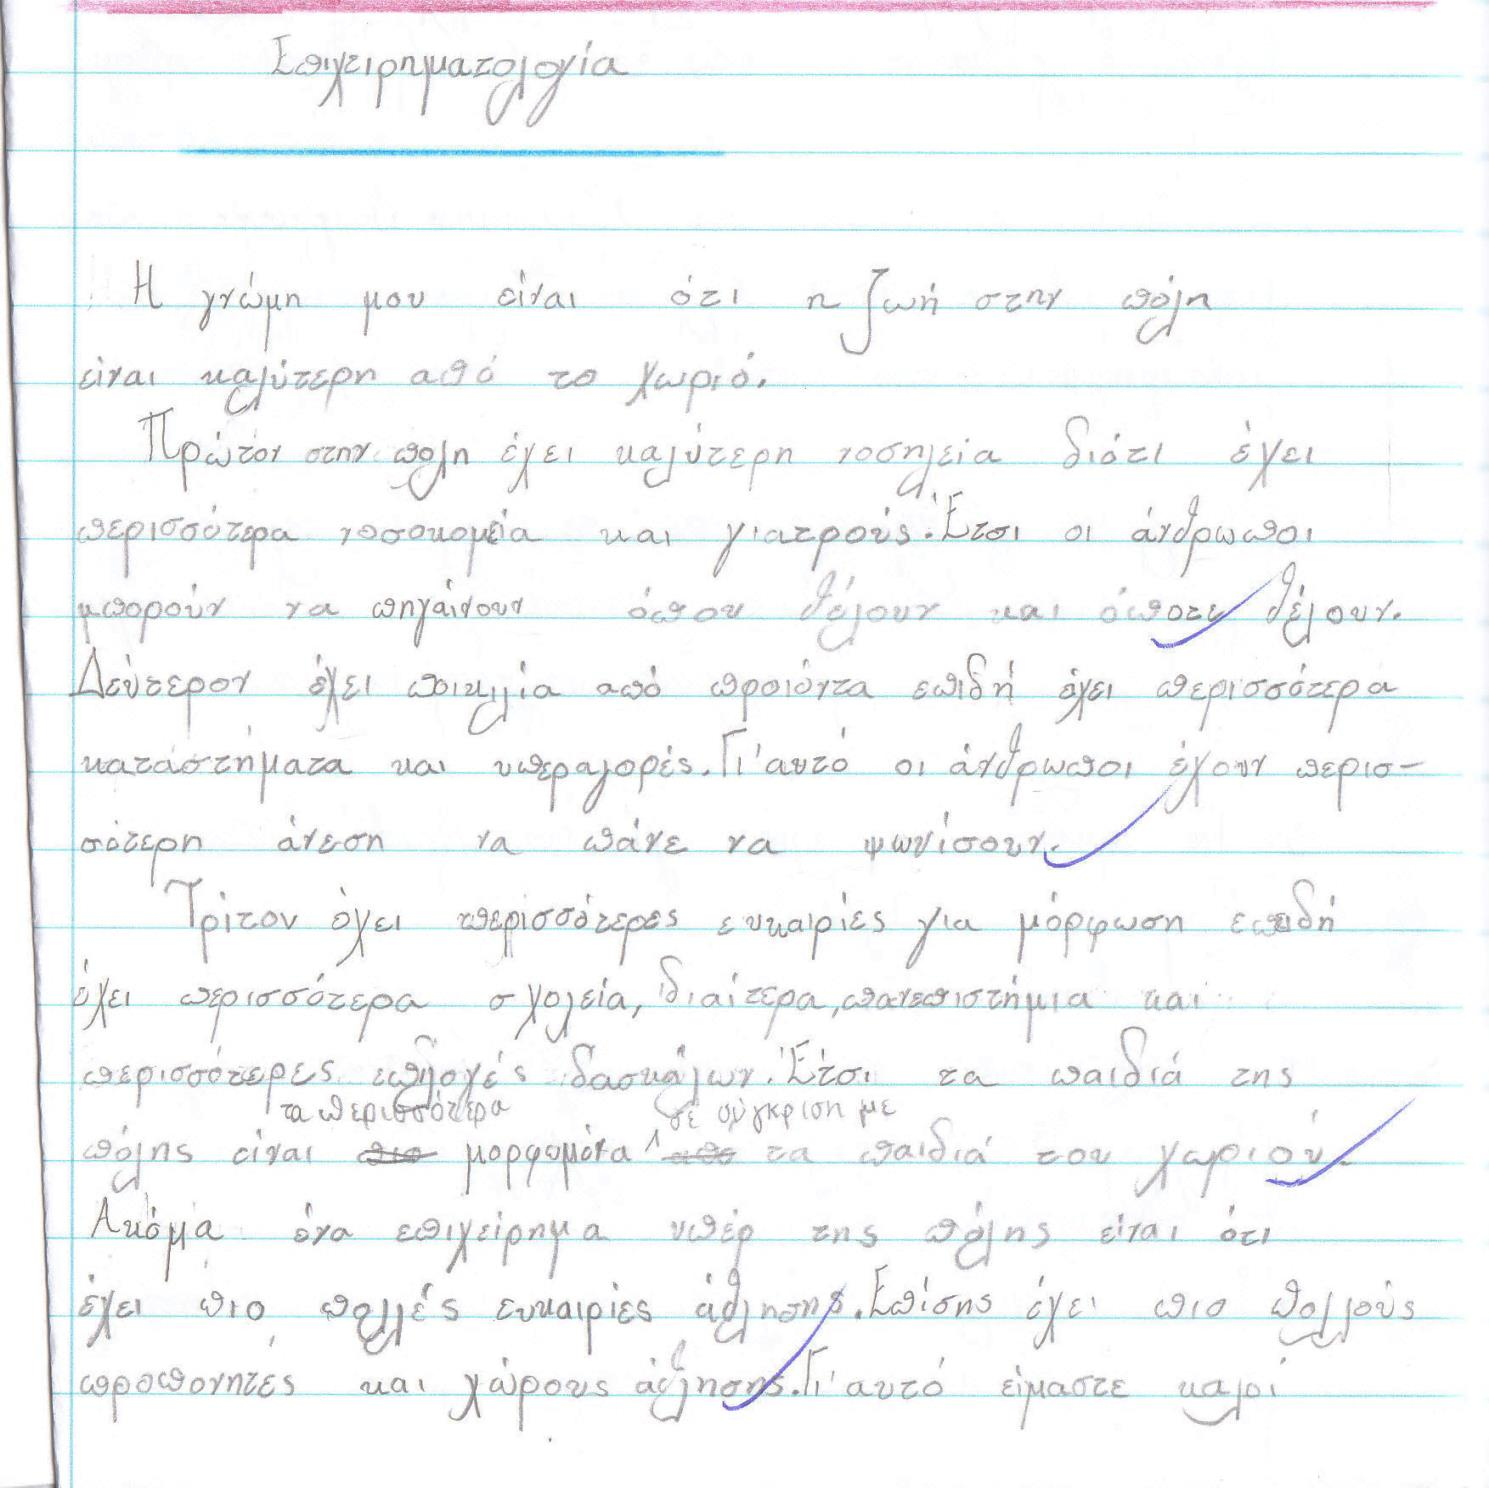 Επιχειρηματολογία
Η γνώμη μου είναι ότι η ζωή στην πόλη
είναι καλύτερη από το χωριό.
Πρώτον στην πολη έχει καλύτερη νοσηλεία διότι έχει
περισσότερα νοσοκομεία και γιατρούς. Έτσι οι άνθρωποι
μπορούν να πηγαίνουν όπου θέλουν και όποτε θέλουν.
Δεύτερον έχει ποικιλία από προιόντα επιδή έχει περισσότερα
καταστήματα και υπεραγορές. Γι'αυτό οι άνθρωποι έχουν περισ-
σότερη άνεση να πάνε να ψωνίσουν.
Τρίτον έχει περισσότερες ευκαιρίες για μόρφωση επειδή
έχει περισσότερα σχολεία, ιδιαίτερα, πανεπιστήμια και
περισσότερες επιλογές δασκάλων. Έτσι τα παιδιά της
τα περισσότερα σε σύγκριση με
πόλης είναι πιο μορφωμένα από τα παιδιά του χωριού.
Ακόμα ένα επιχείρημα υπέρ της πόλης είναι ότι
έχει πιο πολλές ευκαιρίες άθλησης. Επίσης έχει πιο πολλούς
προπονητές και χώρους άθλησης. Γι'αυτό είμαστε καλοί